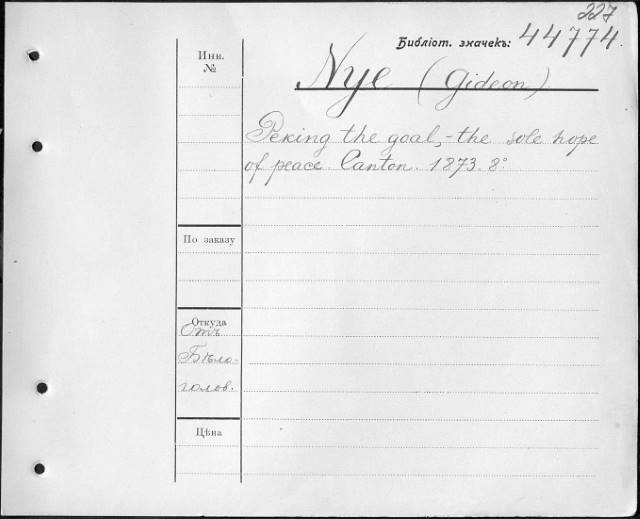 227
Библіот. значекъ: 44774.
Инв.
№
Nye (Gideon)
Peking the goal,-the sole hope
of peace. Canton. 1873. 8°
По заказу
Откуда
Отъ
Бѣло-
голов.
Цѣна